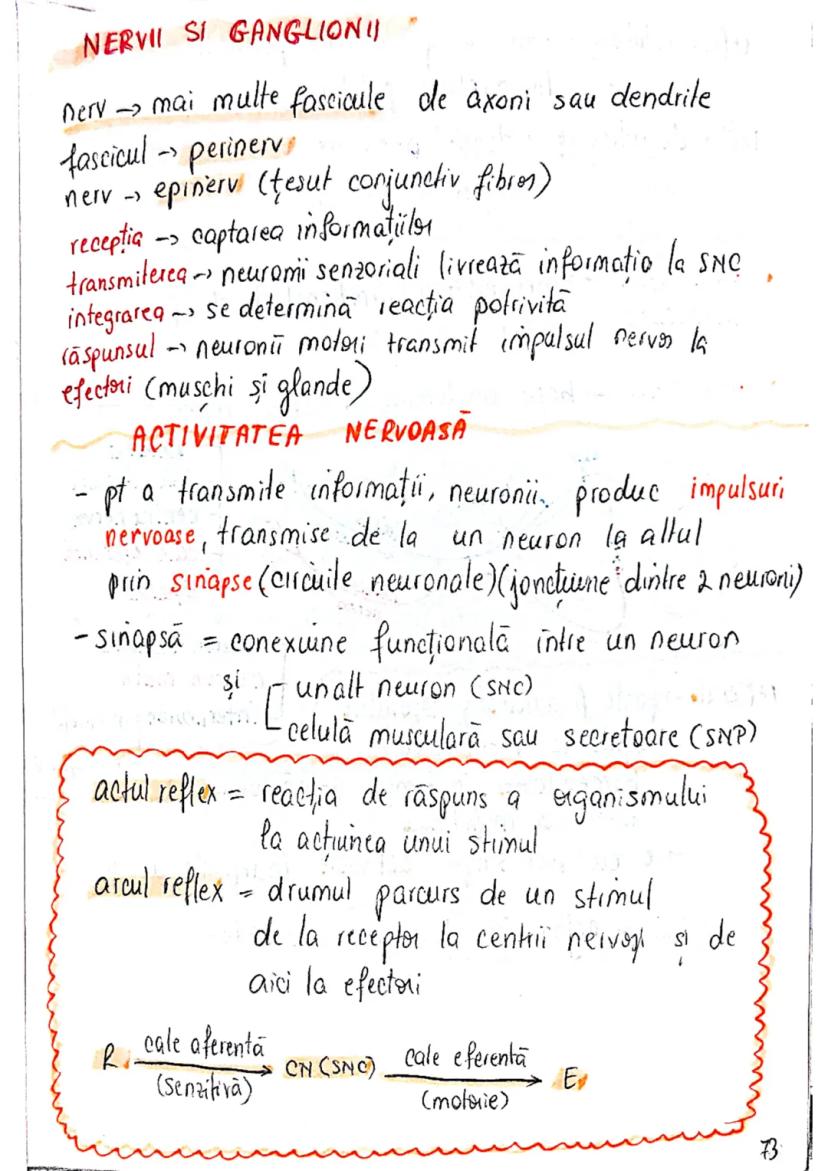 NERVII SI GANGLIONII
nerv → mai multe fascicule de axoni sau dendrite
fascicul → perinerv
nerv → epinerv (țesut conjunctiv fibros)
recepția → captarea informațiilor
transmiterea → neuronii senzoriali livrează informația la SNC
integrarea → se determină reacția potrivită
răspunsul → neuronii motori transmit impulsul nervos la
efectori (mușchi și glande)
ACTIVITATEA NERVOASĂ
- pt a transmite informații, neuronii produc impulsuri
nervoase, transmise de la un neuron la altul
prin sinapse (circuitele neuronale) (joncțiune dintre 2 neuroni)
- sinapsă = conexiune funcțională între un neuron
și un alt neuron (SNC)
celulă musculară sau secretoare (SNP)
actul reflex = reacția de răspuns a organismului
la acțiunea unui stimul
arcul reflex = drumul parcurs de un stimul
de la receptor la centrii nervoși și de
aici la efectori
R cale aferentă (senzitivă) → CN (SNC) cale eferentă (motorie) → E
73